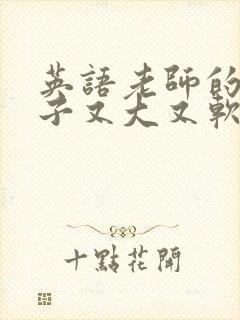 英語老師的
子又大又軟
十點花開